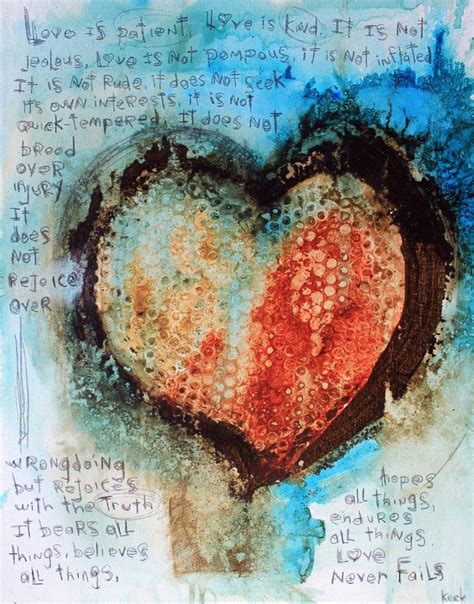 Love is patient, Love is kind, It Is Not
jealous, Love Is Not pompous, it is Not inflated
It is Not Rude, it does Not Seek
It's own interests, it is Not
Quick-tempered, It does Not
brood
over
injury
It
does
Not
Rejoice
over
wrongdoing
but Rejoices
with the Truth
It bears all
things, believes
all things,
hopes
all things,
endures
all things.
Love
Never Fails
Keck